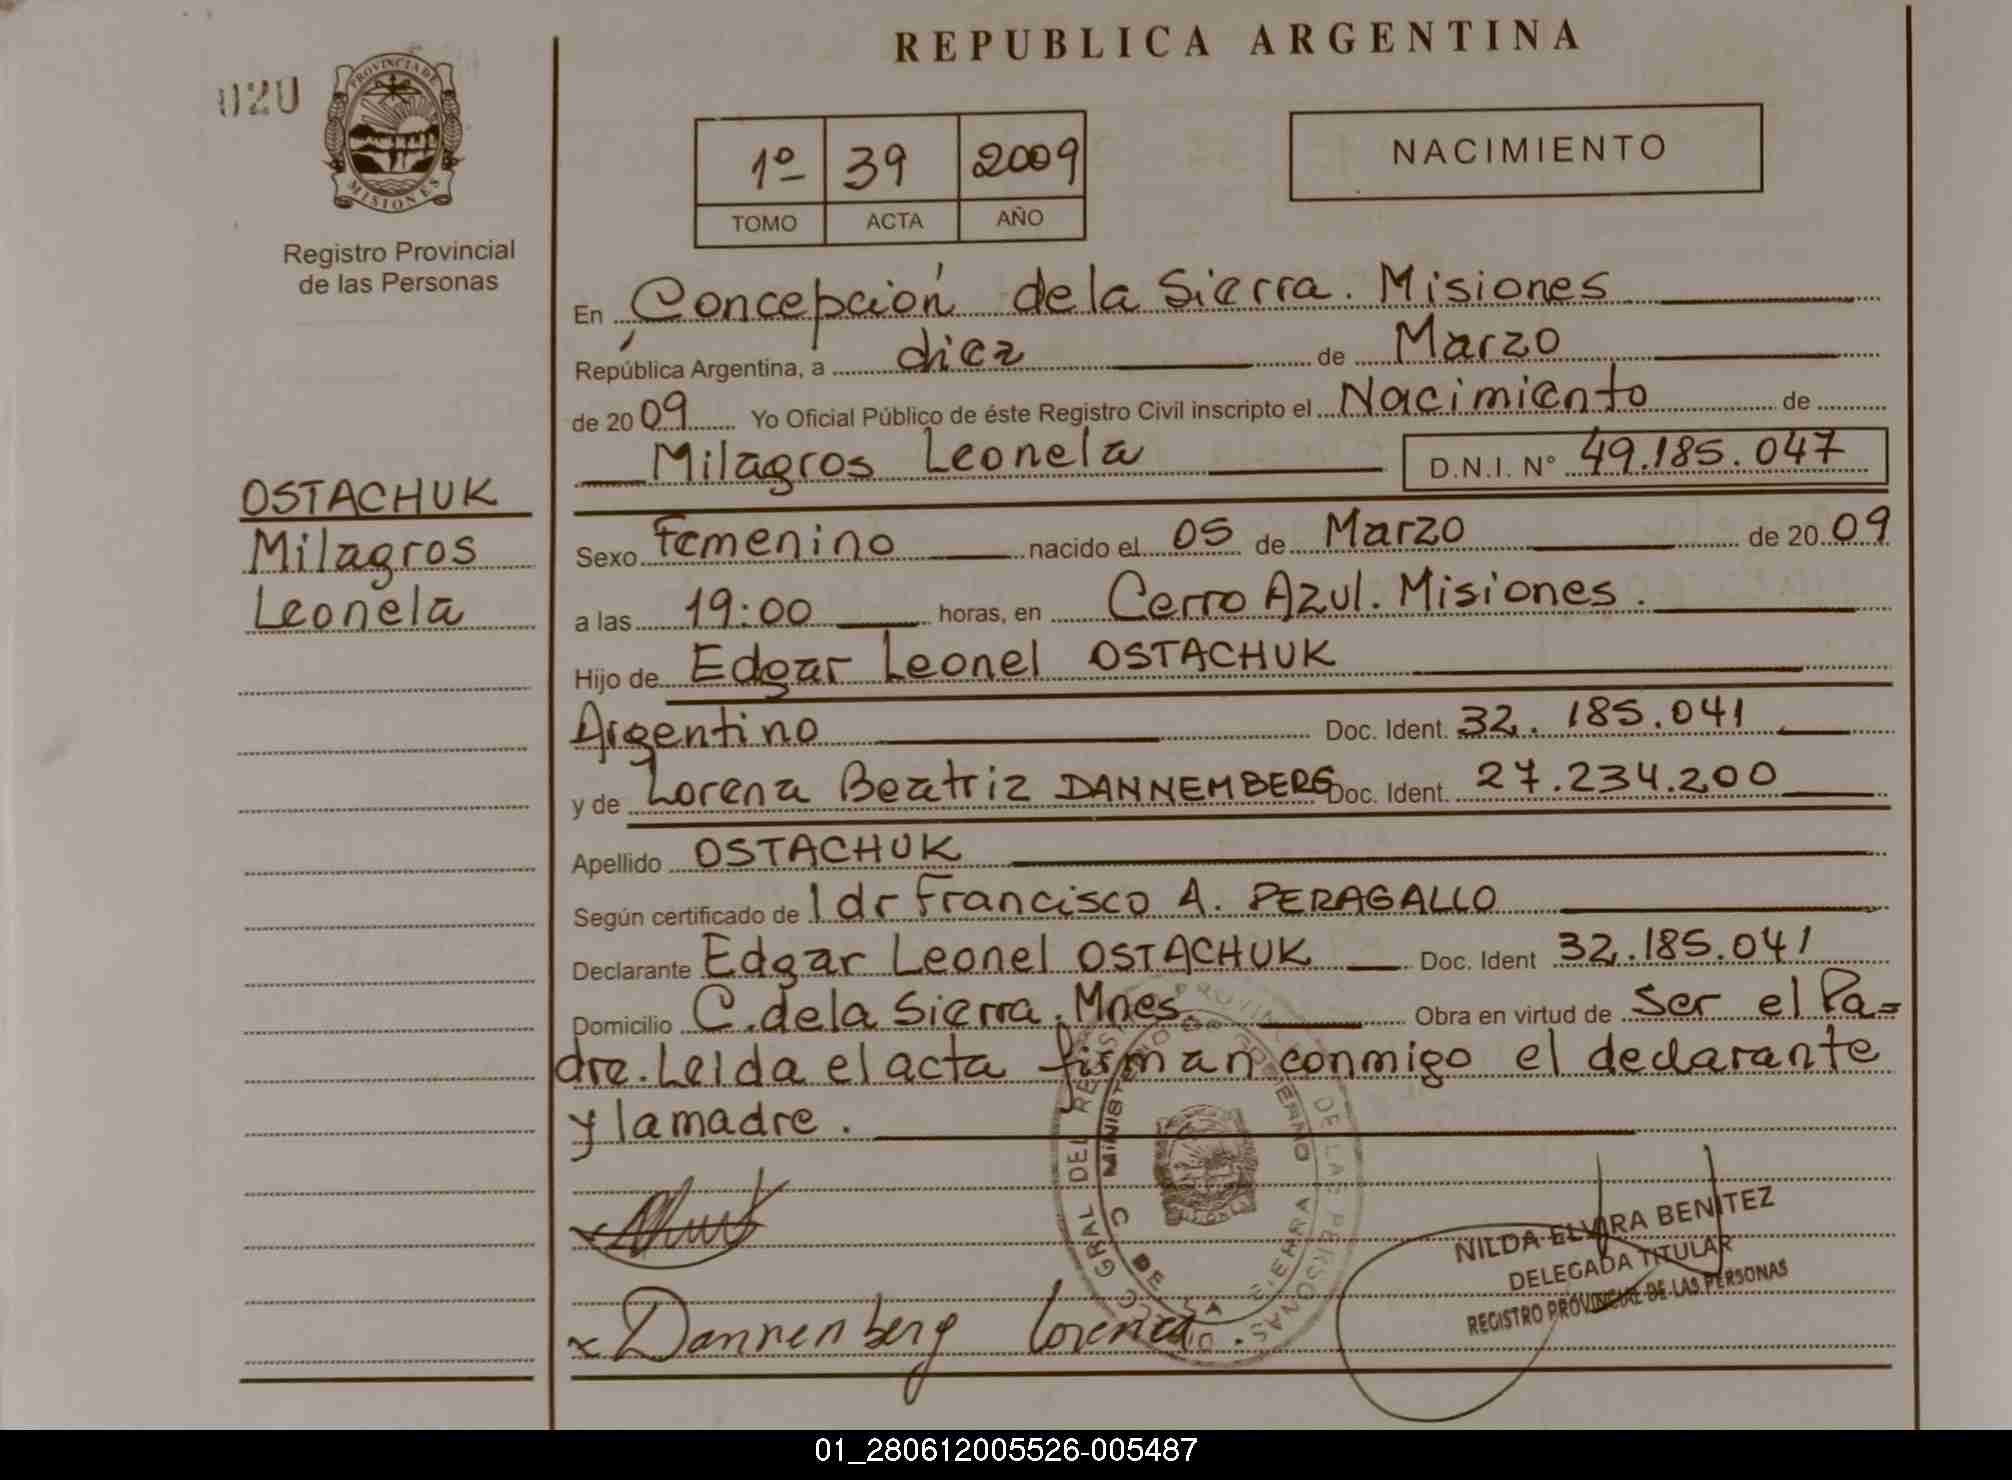 REPUBLICA ARGENTINA
020
PROVINCIA DE MISIONES
Registro Provincial
de las Personas
1º 39 2009
TOMO ACTA AÑO
NACIMIENTO
En Concepción de la Sierra. Misiones
República Argentina, a diez de Marzo
de 2009 Yo Oficial Público de éste Registro Civil inscripto el Nacimiento de
Milagros Leonela D.N.I. Nº 49.185.047
OSTACHUK
Milagros
Leonela
Sexo Femenino nacido el 05 de Marzo de 2009
a las 19:00 horas, en Cerro Azul. Misiones.
Hijo de Edgar Leonel OSTACHUK
Argentino Doc. Ident. 32.185.041
y de Lorena Beatriz DANNEMBERG Doc. Ident. 27.234.200
Apellido OSTACHUK
Según certificado de l dr Francisco A. PERAGALLO
Declarante Edgar Leonel OSTACHUK Doc. Ident 32.185.041
Domicilio C. de la Sierra. Mnes. Obra en virtud de Ser el Pa=
dre. Leida el acta firman conmigo el declarante
y la madre.
NILDA ELVIRA BENITEZ
DELEGADA TITULAR
REGISTRO PROVINCIAL DE LAS PERSONAS
Dannenberg Lorena
01_280612005526-005487